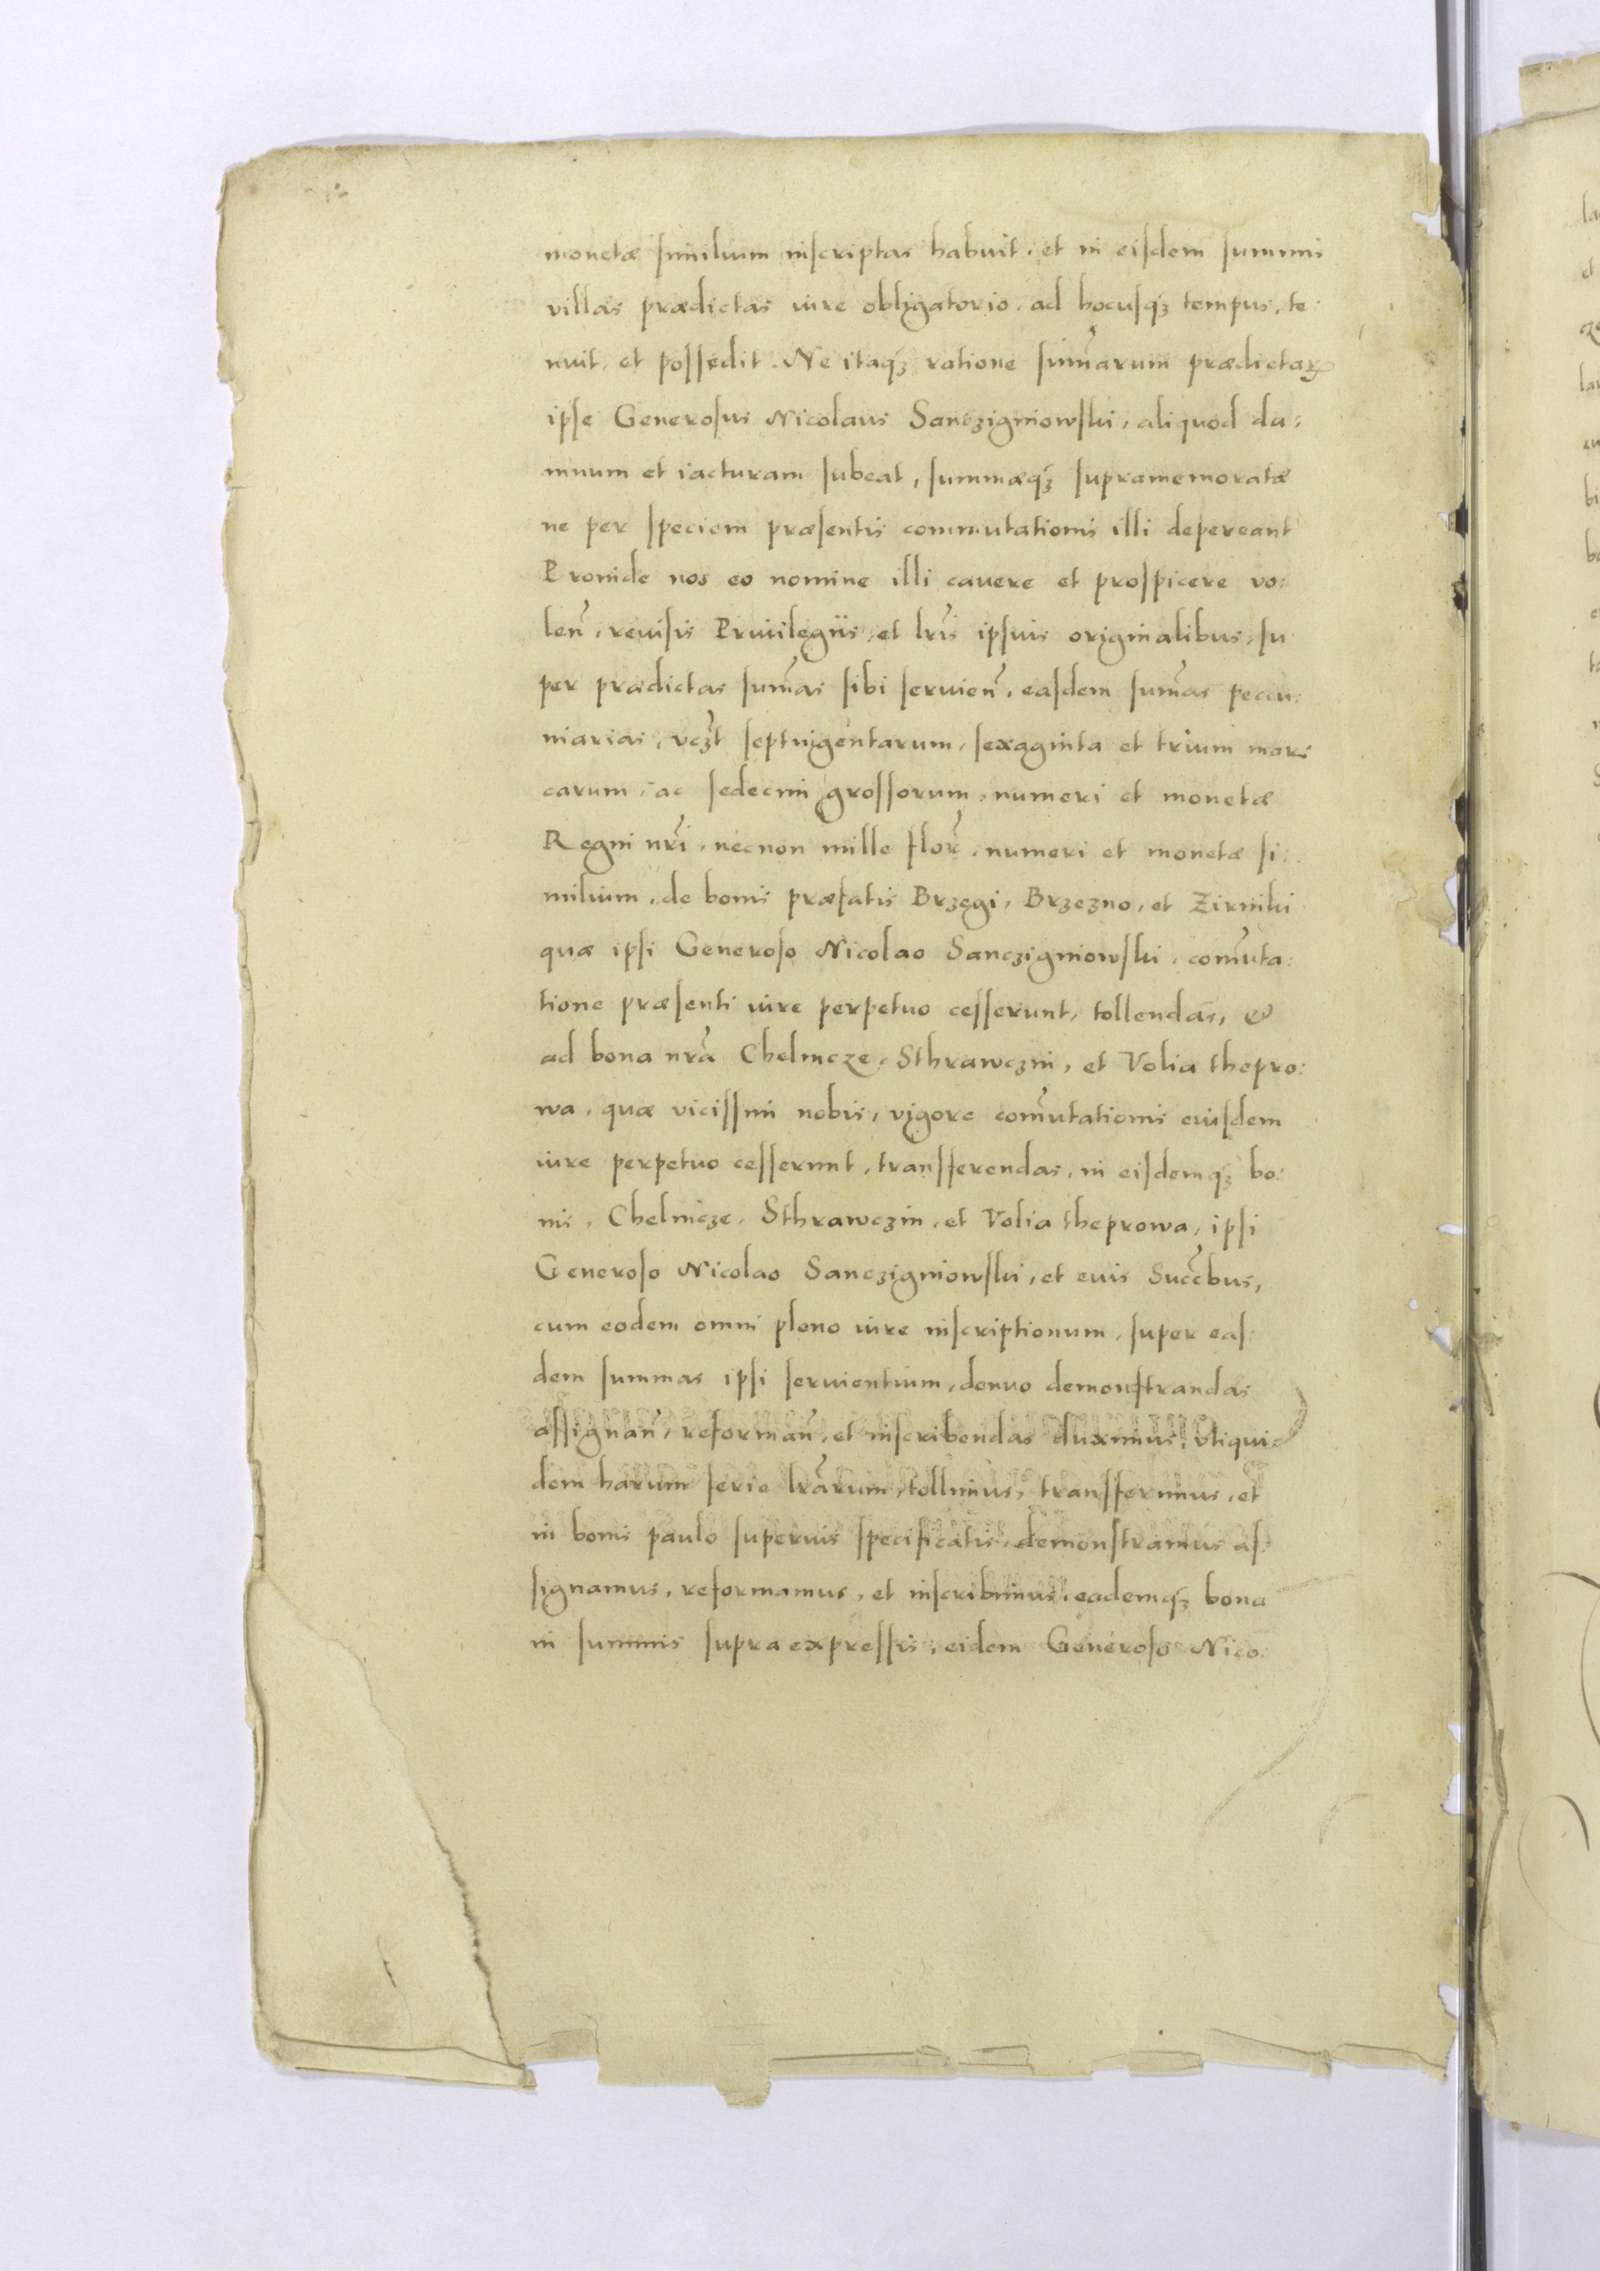 monetæ similium inscriptas habuit, et in eisdem summis
villas prædictas iure obligatorio, ad hocusq₃ tempus, te:
nuit, et possedit. Ne itaq₃ ratione sum̃arum prædictarꝝ
ipse Generosus Nicolaus Sanczigniowski, aliquod da:
mnum et iacturam subeat, summæq₃ supramemoratæ
ne per speciem præsentis commutationis illi depereant
Proinde nos eo nomine illi cavere et prospicere vo:
len̄, revisis Privilegiis, et lr̃is ipsius originalibus, su
per prædictas sum̃as sibi servien̄, easdem sum̃as pecu:
niarias, vcz̃t septuigentarum, sexaginta et trium mar:
carum, ac sedecim grossorum, numeri et monetæ
Regni nr̃i, necnon mille flor̃, numeri et monetæ si:
milium, de bonis præfatis Brzegi, Brzezno, et Zirniki
quæ ipsi Generoso Nicolao Sanczigniowski, com̃uta:
tione præsenti iure perpetuo cesserunt, tollendas, &
ad bona nr̃a Chelmcze, Sthrawczin, et Volia thepro:
wa, quæ vicissim nobis, vigore com̃utationis eiusdem
iure perpetuo cesserunt, transferendas, in eisdemq₃ bo:
nis, Chelmcze, Sthrawczin, et Volia theprowa, ipsi
Generoso Nicolao Sanczigniowski, et eius Succ̃bus,
cum eodem omni pleno iure inscriptionum, super eas:
dem summas ipsi servientium, denuo demonstrandas
assignan̄, reforman̄, et inscribendas duximus, vtiqui:
dem harum serie lr̃arum, tollimus, transferimus, et
in bonis paulo superius specificatis, demonstramus as:
signamus, reformamus, et inscribimus, eademq₃ bona
in summis supra expressis, eidem Generoso Nico: